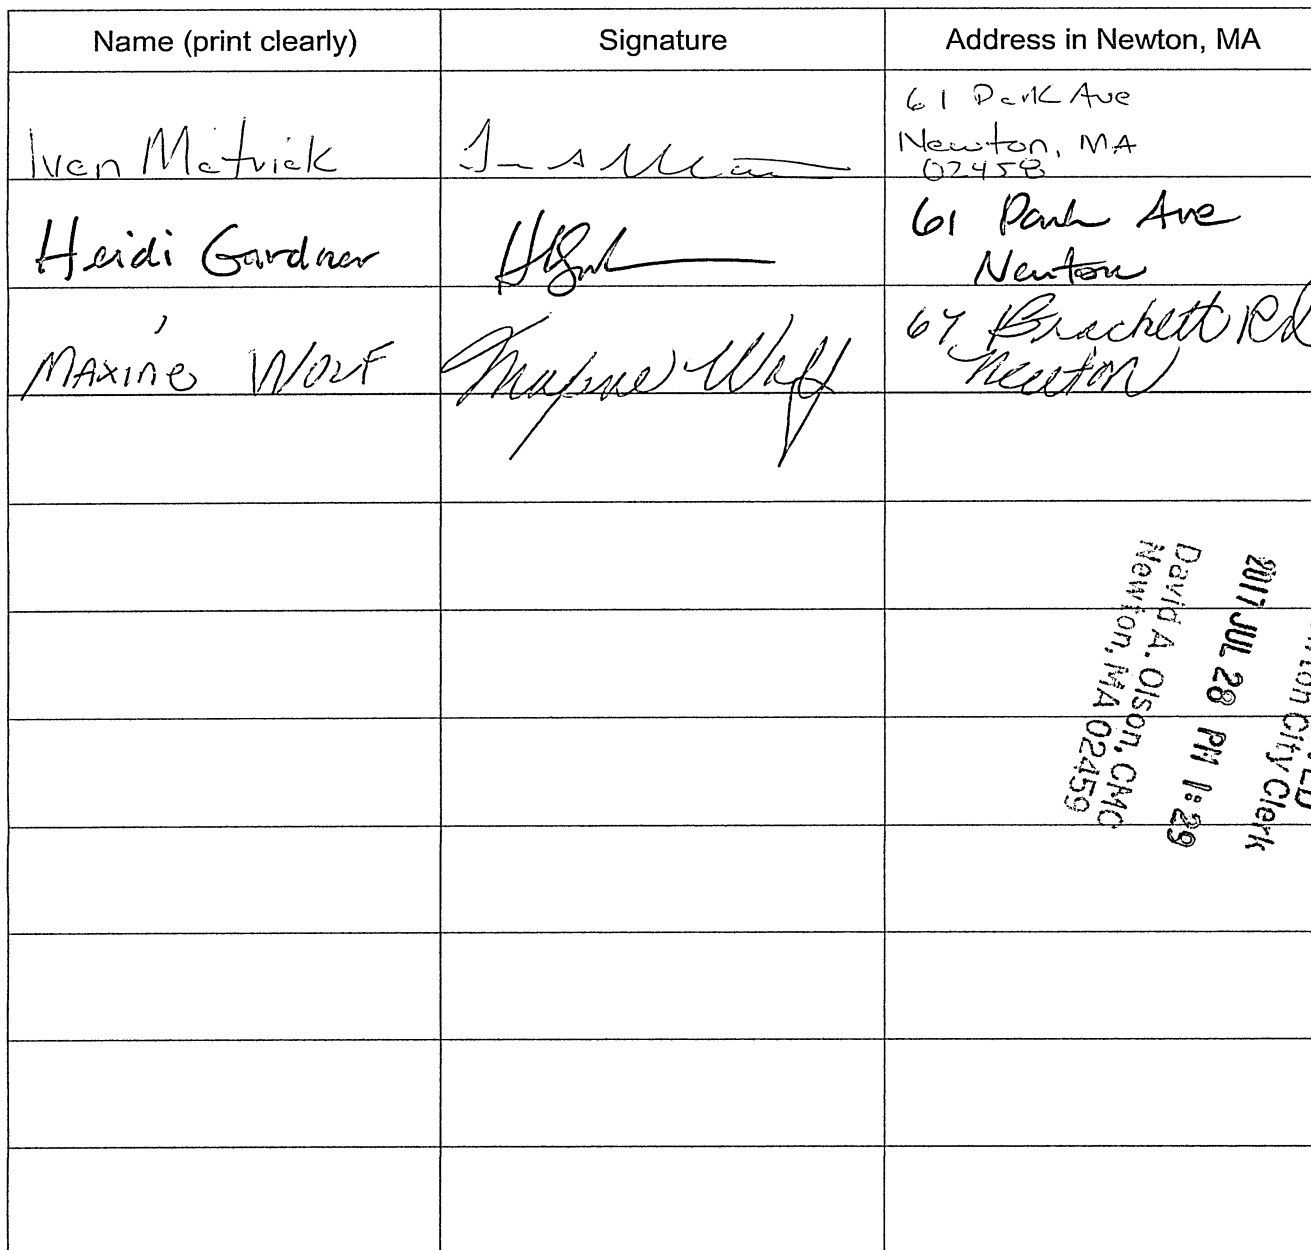 Name (print clearly)
Signature
Address in Newton, MA
Ivan Matrick
61 Park Ave
Newton, MA
02458
Heidi Gardner
61 Park Ave
Newton
Maxine Wolf
Maxine Wolf
67 Brackett Rd
Newton
City Clerk
2017 JUL 28 PM 1:29
David A. Olson, CMC
Newton, MA 02459